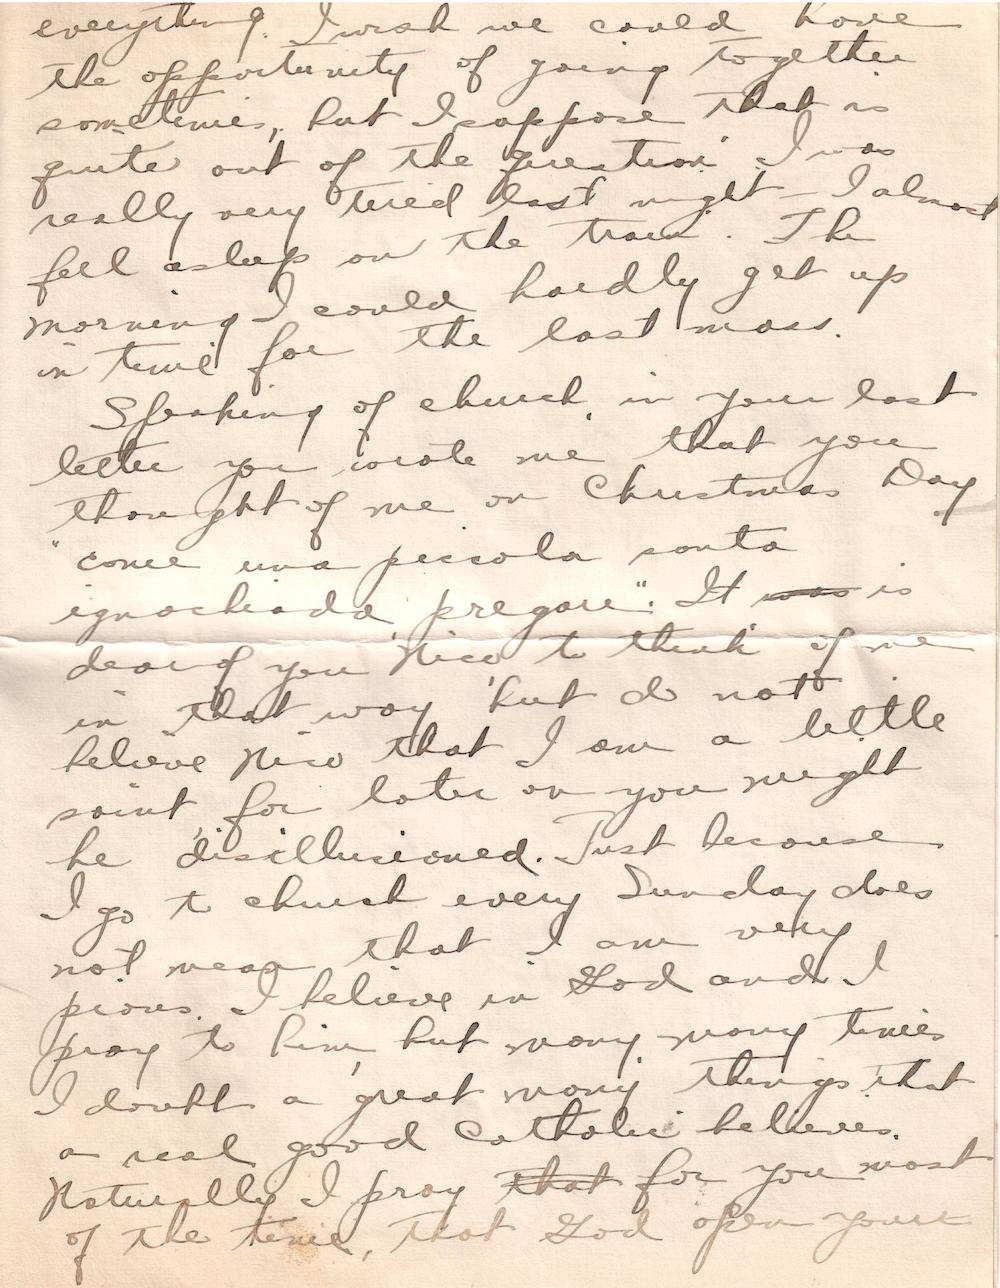 everything. I wish we could have
the opportunity of going together
sometimes, but I suppose that is
quite out of the question. I was
really very tired last night – I almost
fell asleep on the train. The
morning I could hardly get up
in time for the last mass.
Speaking of church, in your last
letter you wrote me that you
thought of me on Christmas Day
"come una piccola santa
ignochiada pregare". It was is
dear of you Nico to think of me
in that way but do not
believe Nico that I am a little
saint, for later on you might
be disillusioned. Just because
I go to church every Sunday does
not mean that I am very
pious. I believe in God and I
pray to him, but many, many times
I doubt a great many things that
a real good Catholic believes.
Naturally I pray that for you most
of the time, that God open your